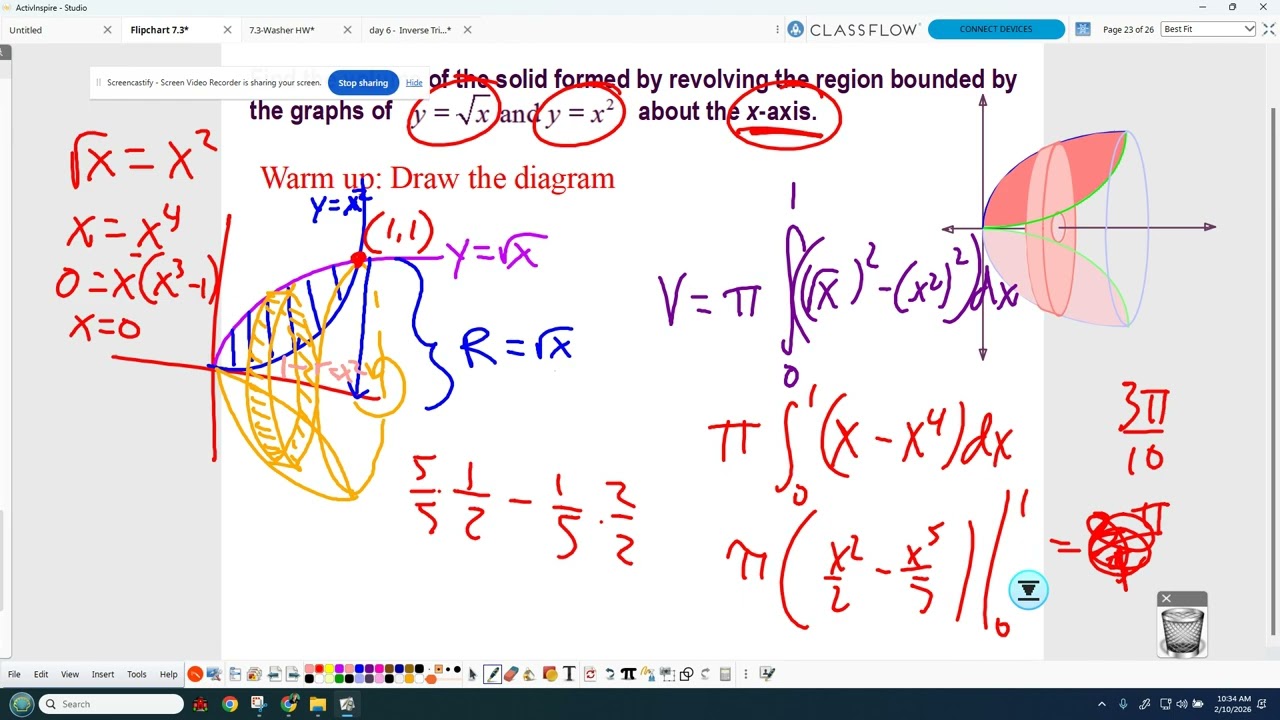 ActivInspire - Studio
Untitled
Flipchart 7.3*
7.3-Washer HW*
day 6 - Inverse Tri...*
CLASSFLOW
CONNECT DEVICES
Page 23 of 26
Best Fit
Screencastify - Screen Video Recorder is sharing your screen.
Stop sharing
Hide
of the solid formed by revolving the region bounded by
the graphs of y = √x and y = x² about the x-axis.
Warm up: Draw the diagram
√x = x²
x = x⁴
0 = x(x³-1)
x=0
y=x²
(1,1)
y=√x
R = √x
V = π ∫₀¹ ((√x)² - (x²)²)dx
π ∫₀¹ (x - x⁴)dx
3π/10
5/5 · 1/2 - 1/5 · 2/2
π (x²/2 - x⁵/5) |₀¹ =
π
File Edit View Insert Tools Help
Search
10:34 AM
2/10/2026